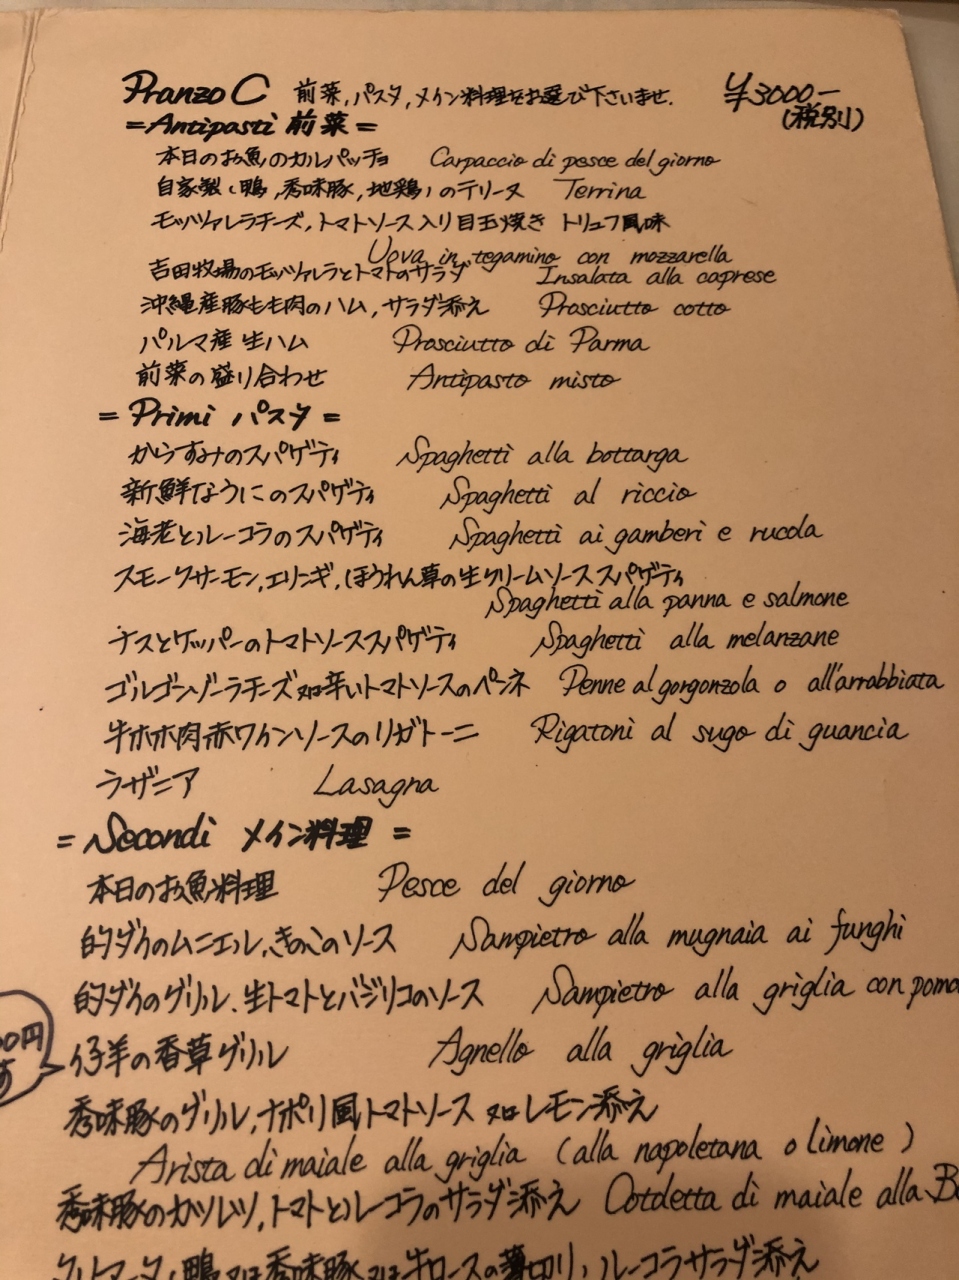 Pranzo C 前菜,パスタ,メイン料理をお選び下さいませ. ¥3000-
(税別)
=Antipasti 前菜=
本日のお魚のカルパッチョ Carpaccio di pesce del giorno
自家製(鴨,秀味豚,地鶏)のテリーヌ Terrina
モッツァレラチーズ,トマトソース入り目玉焼き トリュフ風味
Uova in tegamino con mozzarella
吉田牧場のモッツァレラとトマトのサラダ Insalata alla caprese
沖縄産豚もも肉のハム,サラダ添え Prosciutto cotto
パルマ産生ハム Prosciutto di Parma
前菜の盛り合わせ Antipasto misto
= Primi パスタ =
からすみのスパゲティ Spaghetti alla bottarga
新鮮なうにのスパゲティ Spaghetti al riccio
海老とルーコラのスパゲティ Spaghetti ai gamberi e rucola
スモークサーモン,エリンギ,ほうれん草の生クリームソーススパゲティ
Spaghetti alla panna e salmone
ナスとケッパーのトマトソーススパゲティ Spaghetti alla melanzane
ゴルゴンゾーラチーズ又は辛いトマトソースのペンネ Penne al gorgonzola o all'arrabbiata
牛ホホ肉赤ワインソースのリガトーニ Rigatoni al sugo di guancia
ラザニア Lasagna
= Secondi メイン料理 =
本日のお魚料理 Pesce del giorno
的ダイのムニエル、きのこのソース Sampietro alla mugnaia ai funghi
的ダイのグリル、生トマトとバジリコのソース Sampietro alla griglia con pomo
00円
仔羊の香草グリル Agnello alla griglia
秀味豚のグリル,ナポリ風トマトソース 又はレモン添え
Arista di maiale alla griglia (alla napoletana o limone)
秀味豚のカツレツ,トマトとルーコラのサラダ添え Cotoletta di maiale alla B
タリアータ(鴨又は秀味豚又は牛ロースの薄切り),ルーコラサラダ添え